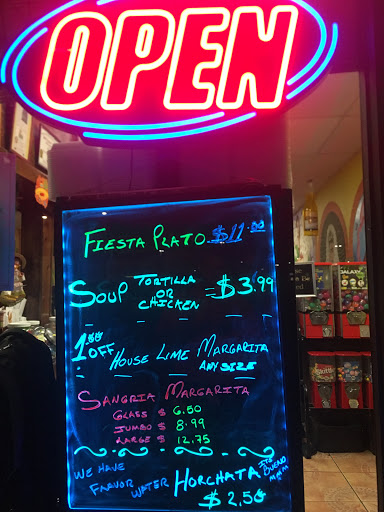 OPEN
FIESTA PLATO $11.00
SOUP TORTILLA OR CHICKEN = $3.99
1.00 OFF HOUSE LIME MARGARITA ANY SIZE
SANGRIA MARGARITA
GLASS $ 6.50
JUMBO $ 8.99
LARGE $ 12.75
WE HAVE FLAVOR WATER HORCHATA ITS BUENO MMM
$ 2.50
GALAXY